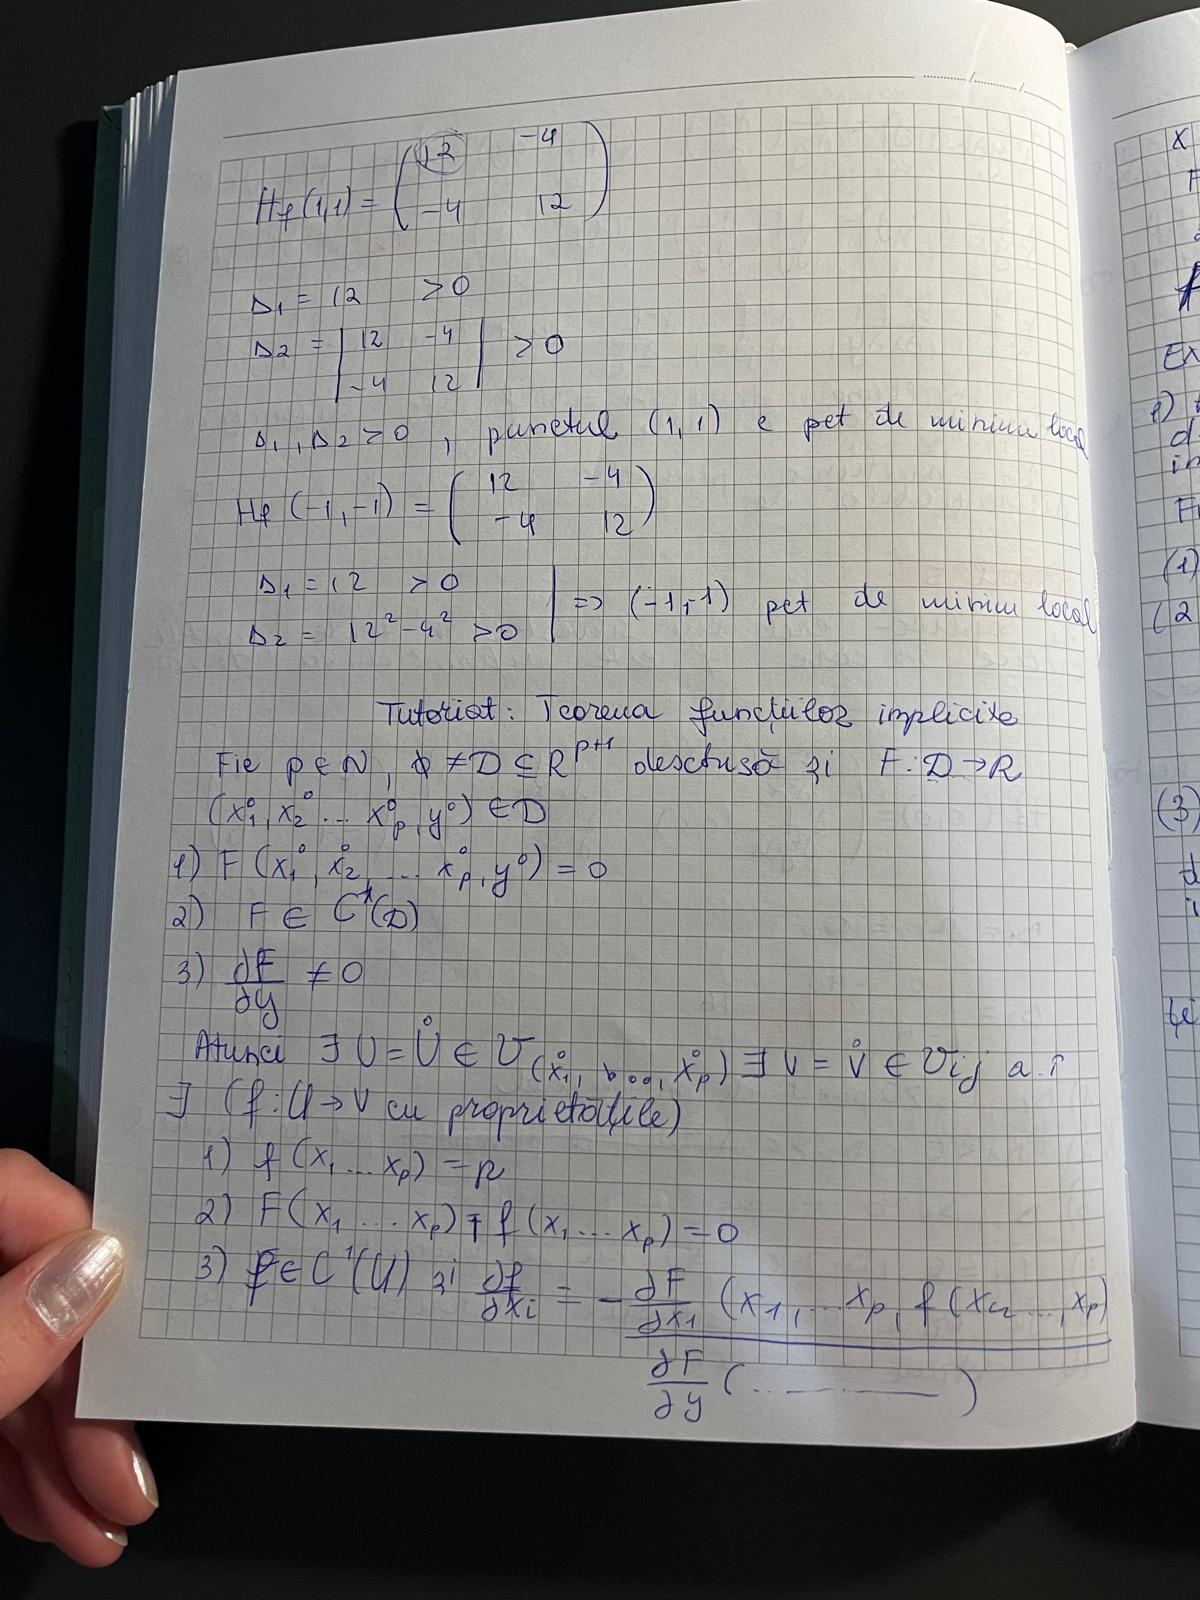 Hf(1,1) = ( 12 -4
-4 12 )
Δ1 = 12 > 0
Δ2 = | 12 -4
-4 12 | > 0
Δ1, Δ2 > 0, punctul (1,1) e pct de minim local
Hf (-1,-1) = ( 12 -4
-4 12 )
Δ1 = 12 > 0
Δ2 = 12² - 4² > 0 | => (-1,-1) pct de minim local
Tutoriat: Teorema funcțiilor implicite
Fie p ∈ N, ϕ ≠ D ⊆ R^{p+1} deschisă și F: D → R
(x₁⁰, x₂⁰ ... x_p⁰, y⁰) ∈ D
1) F (x₁⁰, x₂⁰, ... x_p⁰, y⁰) = 0
2) F ∈ C¹(D)
3) ∂F/∂y ≠ 0
Atunci ∃ U = Ů ∈ V(x₁⁰, ..., x_p⁰) ∃ V = V̊ ∈ V a.î
∃ (f: U → V cu proprietățile)
1) f (x₁ ... x_p) =
2) F(x₁ ... x_p) f (x₁ ... x_p) = 0
3) f ∈ C¹(U) și ∂f/∂xi = - ∂F/∂x1 (x1, ... xp, f (x1 ..., xp)
∂F/∂y (..........)
X
F
Ex
1)
d
in
(1)
(2
(3)
d
i